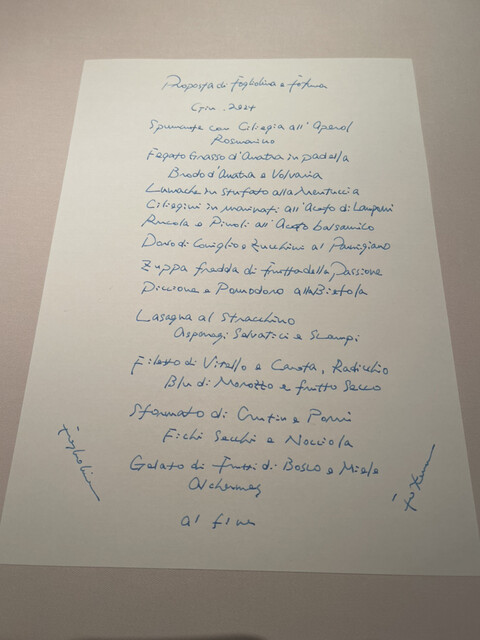 Proposta di Fogliolina e
Giu. 2024
Spumante con Ciliegia all'Aperol
Rosmarino
Fegato Grasso d'Anatra in padella
Brodo d'Anatra e Volvaria
Lumache in stufato alla Mentuccia
Ciliegini in marinati all'Aceto di Lamponi
Rucola e Pinoli all'Aceto balsamico
Dorso di Coniglio e Zucchine al Parmigiano
Zuppa fredda di frutta della Passione
Piccione e Pomodoro alla Bietola
Lasagna al Stracchino
Asparagi Selvatici e Scampi
Filetto di Vitello e Carota, Radicchio
Blu di Morozzo e frutto Secco
Sformato di e
Fichi Secchi e Nocciola
Gelato di Frutti di Bosco e Miele
Alchermes
al fine